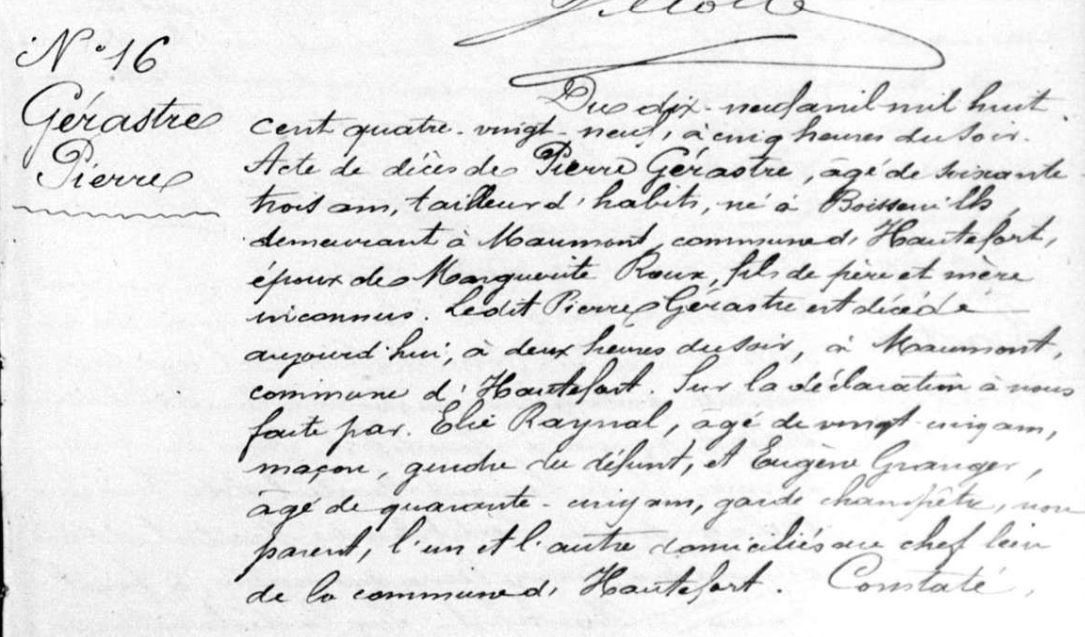 N° 16
Gérastre
Pierre
Du dix-neuf avril mil huit
cent quatre-vingt-neuf, à cinq heures du soir.
Acte de décès de Pierre Gérastre, âgé de soixante
trois ans, tailleur d'habits, né à Boisseuilh,
demeurant à Maumont, commune d'Hautefort,
époux de Marguerite Roux, fils de père et mère
inconnus. Ledit Pierre Gérastre est décédé
aujourd'hui, à deux heures du soir, à Maumont,
commune d'Hautefort. Sur la déclaration à nous
faite par Elie Raynal, âgé de vingt-cinq ans,
maçon, gendre du défunt, et Eugène Granger,
âgé de quarante-cinq ans, garde champêtre, non
parent, l'un et l'autre domiciliés au chef lieu
de la commune d'Hautefort. Constaté,